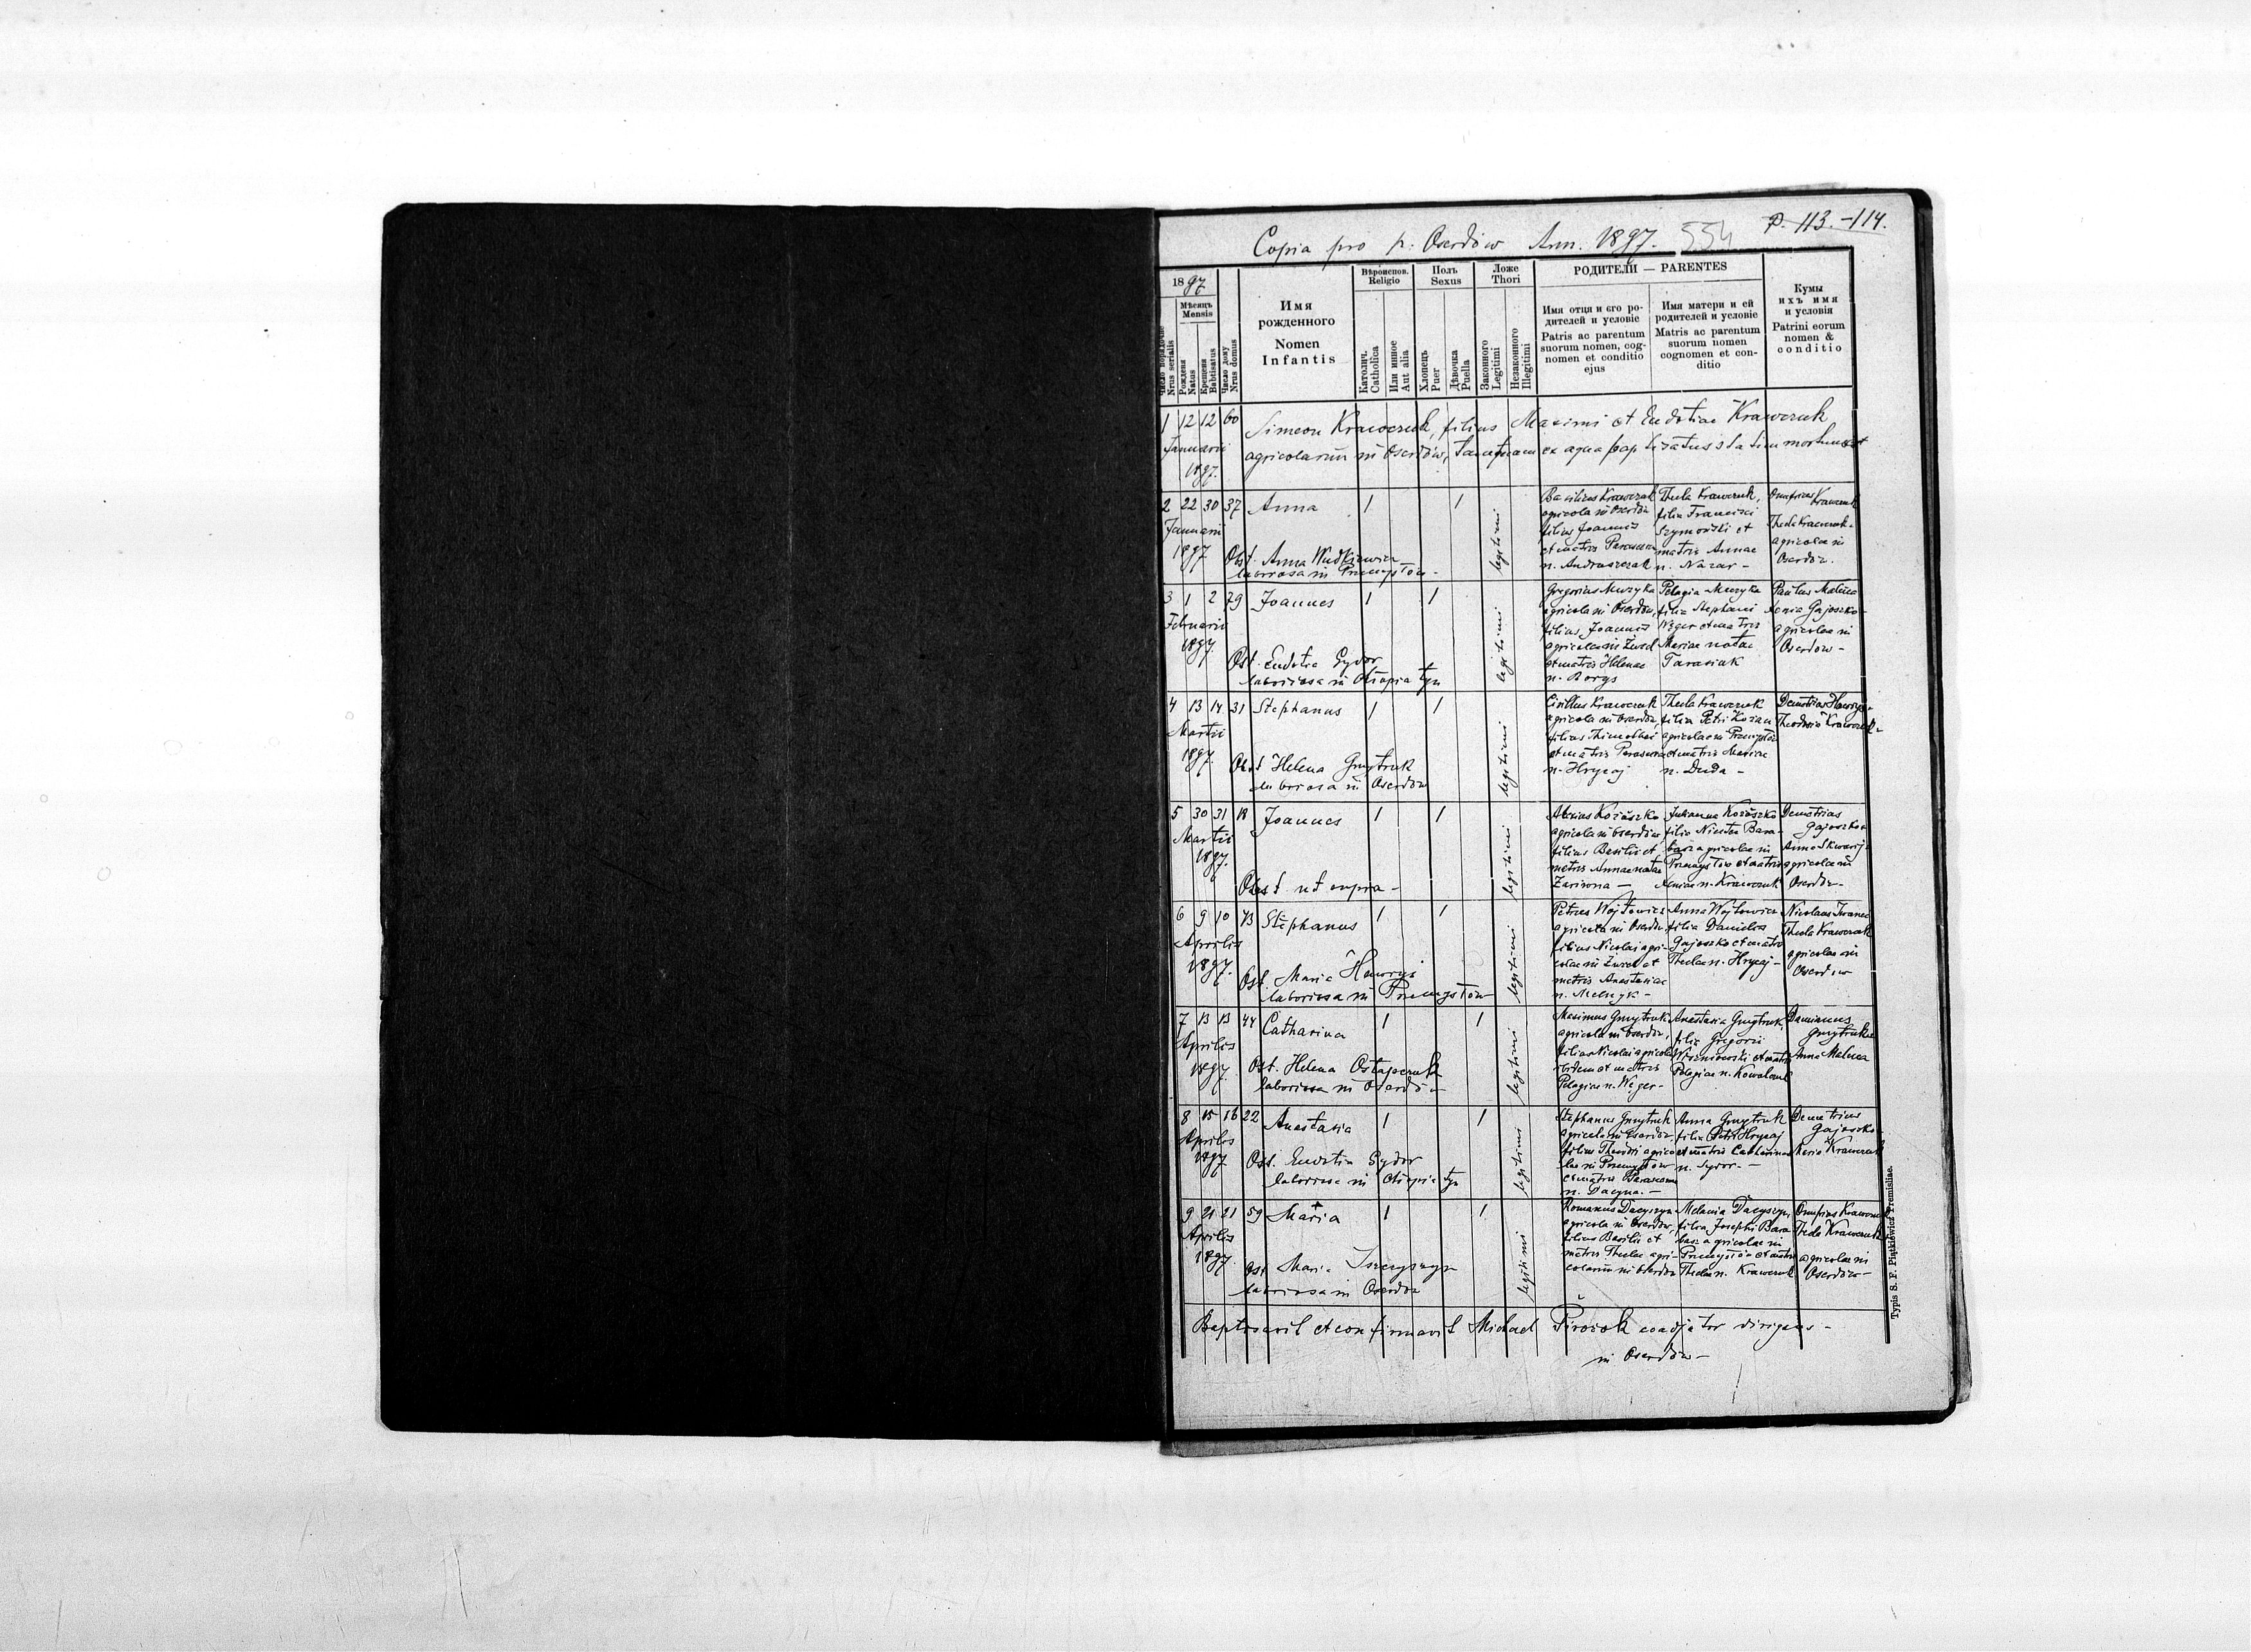 Copia pro p: Oserdów Ann. 1897. 554 P. 113.-114.
1897
Число порядкове
Nrus serialis
Мѣсяцъ
Mensis
Рождена
Natus
Крещена
Babtisatus
Число дому
Nrus domus
Имя
рожденного
Nomen
Infantis
Вѣроиспов.
Religio
Католич.
Catholica
Или инное
Aut alia
Полъ
Sexus
Хлопецъ
Puer
Дѣвочка
Puella
Ложе
Thori
Законного
Legitimi
Незаконного
Illegitimi
РОДИТЕЛИ — PARENTES
Имя отця и єго ро-
дителей и условіє
Patris ac parentum
suorum nomen, cog-
nomen et conditio
ejus
Имя матери и єй
родителей и условіє
Matris ac parentum
suorum nomen
cognomen et con-
ditio
Кумы
ихъ имя
и условія
Patrini eorum
nomen &
conditio
1 12 12 60 Simeon Krawczuk, filius Maximi et Eudotiae Krawczuk
Januarii agricolarum in Oserdów, ex aqua baptizatus statim mortuus est
1897.
2 22 30 37 Anna 1 1 legitimi
Januarii
1897
Obst. Anna Wudkiewicz
laboriosa in Przemysłów -
Basilius Krawczuk
agricola in Oserdów
filius Joannis
et matris Parascevae
n. Andraszczak
Thecla Krawczuk,
filia Francisci
Szymoński et
matris Annae
n. Nazar -
Onufrius Krawczuk
Thecla Krawczuk -
agricolae in
Oserdów.
3 1 2 79 Joannes 1 1 legitimi
Februarii
1897
Obst. Eudotia Sydor
laboriosa in Chłopiatyn
Gregorius Muzyka
agricola in Oserdów,
filius Joannis
agricolae in Żurel
et matris Helenae
n. Borys
Pelagia Muzyka
filia Stephani
Weger et matris
Mariae natae
Tarasiuk
Paulus Malica
Xenia Gajoszko -
agricolae in
Oserdow -
4 13 14 31 Stephanus 1 1 legitimi
Martii
1897.
Obst Helena Gmytruk
laboriosa in Oserdow
Cirillus Krawczuk
agricola in Oserdów,
filius Thimothei
et matris Parascevae
n. Hrycaj
Thecla Krawczuk
filia Petri Kozan
agricolae in Przemysłów
et matris Mariae
n. Duda -
Demetrius Hawryś -
Theodosia Krawczuk -
5 30 31 18 Joannes 1 1 legitimi
Martii
1897.
Obst. ut supra -
Alexius Kozaszko
agricola in Oserdów
filius Basilii et
matris Annae natae
Zarisna —
Julianna Kozaszko
filia Nicetae Bara-
basz agricolae in
Przemysłów et matris
Xeniae n. Krawczuk
Demetrius
Gajoszko
Anna Skwarij
agricolae in
Oserdów -
6 9 10 73 Stephanus 1 1 legitimi
Aprilis
1897.
Obst. Maria Hawryś
laboriosa in Przemysłów
Petrus Wojtowicz
agricola in Oserdów
filius Nicolai agri-
colae in Żurel et
matris Anastasiae
n. Melnyk -
Anna Wojtowicz
filia Danielis
Gajoszko et matris
Theclae n. Hrycaj -
Nicolaus Iwanec
Thecla Krawczuk
agricolae in
Oserdow
7 13 13 44 Catharina 1 1 legitimi
Aprilis
1897.
Obst. Helena Ostapczuk
laboriosa in Oserdów
Maximus Gmytruk
agricola in Oserdów,
filius Nicolai agricolae
ibidem et matris
Pelagiae n. Weger -
Anastasia Gmytruk,
filia Gregorii
Wiszniowski et matris
Pelagiae n. Kowaluk
Damianus
Gmytruk
Anna Malica
8 15 16 22 Anastasia 1 1 legitimi
Aprilis
1897
Obst. Eudotia Sydor
laboriosa in Chłopiatyn
Stephanus Gmytruk
agricola in Oserdów,
filius Theodori agrico-
lae in Przemysłow
et matris Parascevae
n. Dacyna. —
Anna Gmytruk
filia Petri Hrycaj
et matris Catharinae
n. Sydor. —
Demetrius
Gajoszko -
Maria Krawczuk
9 21 21 59 Maria 1 1 legitimi
Aprilis
1897.
Obst Maria Iszczyszyn
laboriosa in Oserdów
Romanus Dacyszyn
agricola in Oserdow,
filius Basilii et
matris Theclae agri-
colarum in Oserdów
Melania Dacyszyn,
filia Josephi Bara
basz agricolae in
Przemysłów et matris
Theclae n. Krawczuk
Onufrius Krawczuk
Thecla Krawczuk -
agricolae in
Oserdów -
Baptisavit et confirmavit Michael Pirożok coadjutor dirigens -
in Oserdów -
Typis S. F. Piątkiewicz Premisliae.